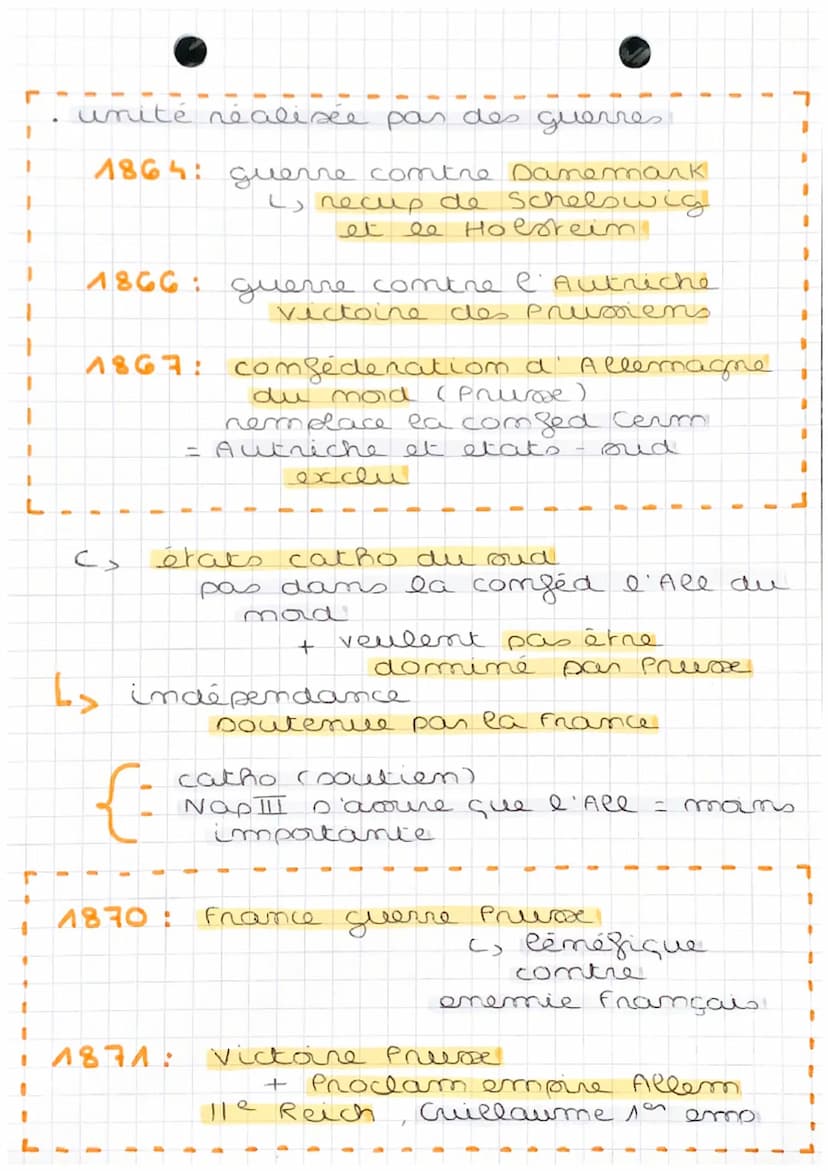 . unité réalisée par des guerres
1864: guerre contre Danemark
↳ recup de Schelswig
et le Holstein
1866: guerre contre l'Autriche
victoire des Prussiens
1867: conféderation d'Allemagne
du nord (Prusse)
remplace la conféd Germ
= Autriche et etats-sud
exclu
↳ états catho du sud
pas dans la conféd l'All du
nord
+ veulent pas être
dominé par Prusse
↳ indépendance
soutenue par la France
- catho (soutien)
- Nap III s'assure que l'All = moins
importante
1870: France guerre Prusse
↳ bénéfique
contre
enemie Français
1871: Victoire Prusse
+ Proclam empire Allem
IIe Reich, Guillaume 1er emp